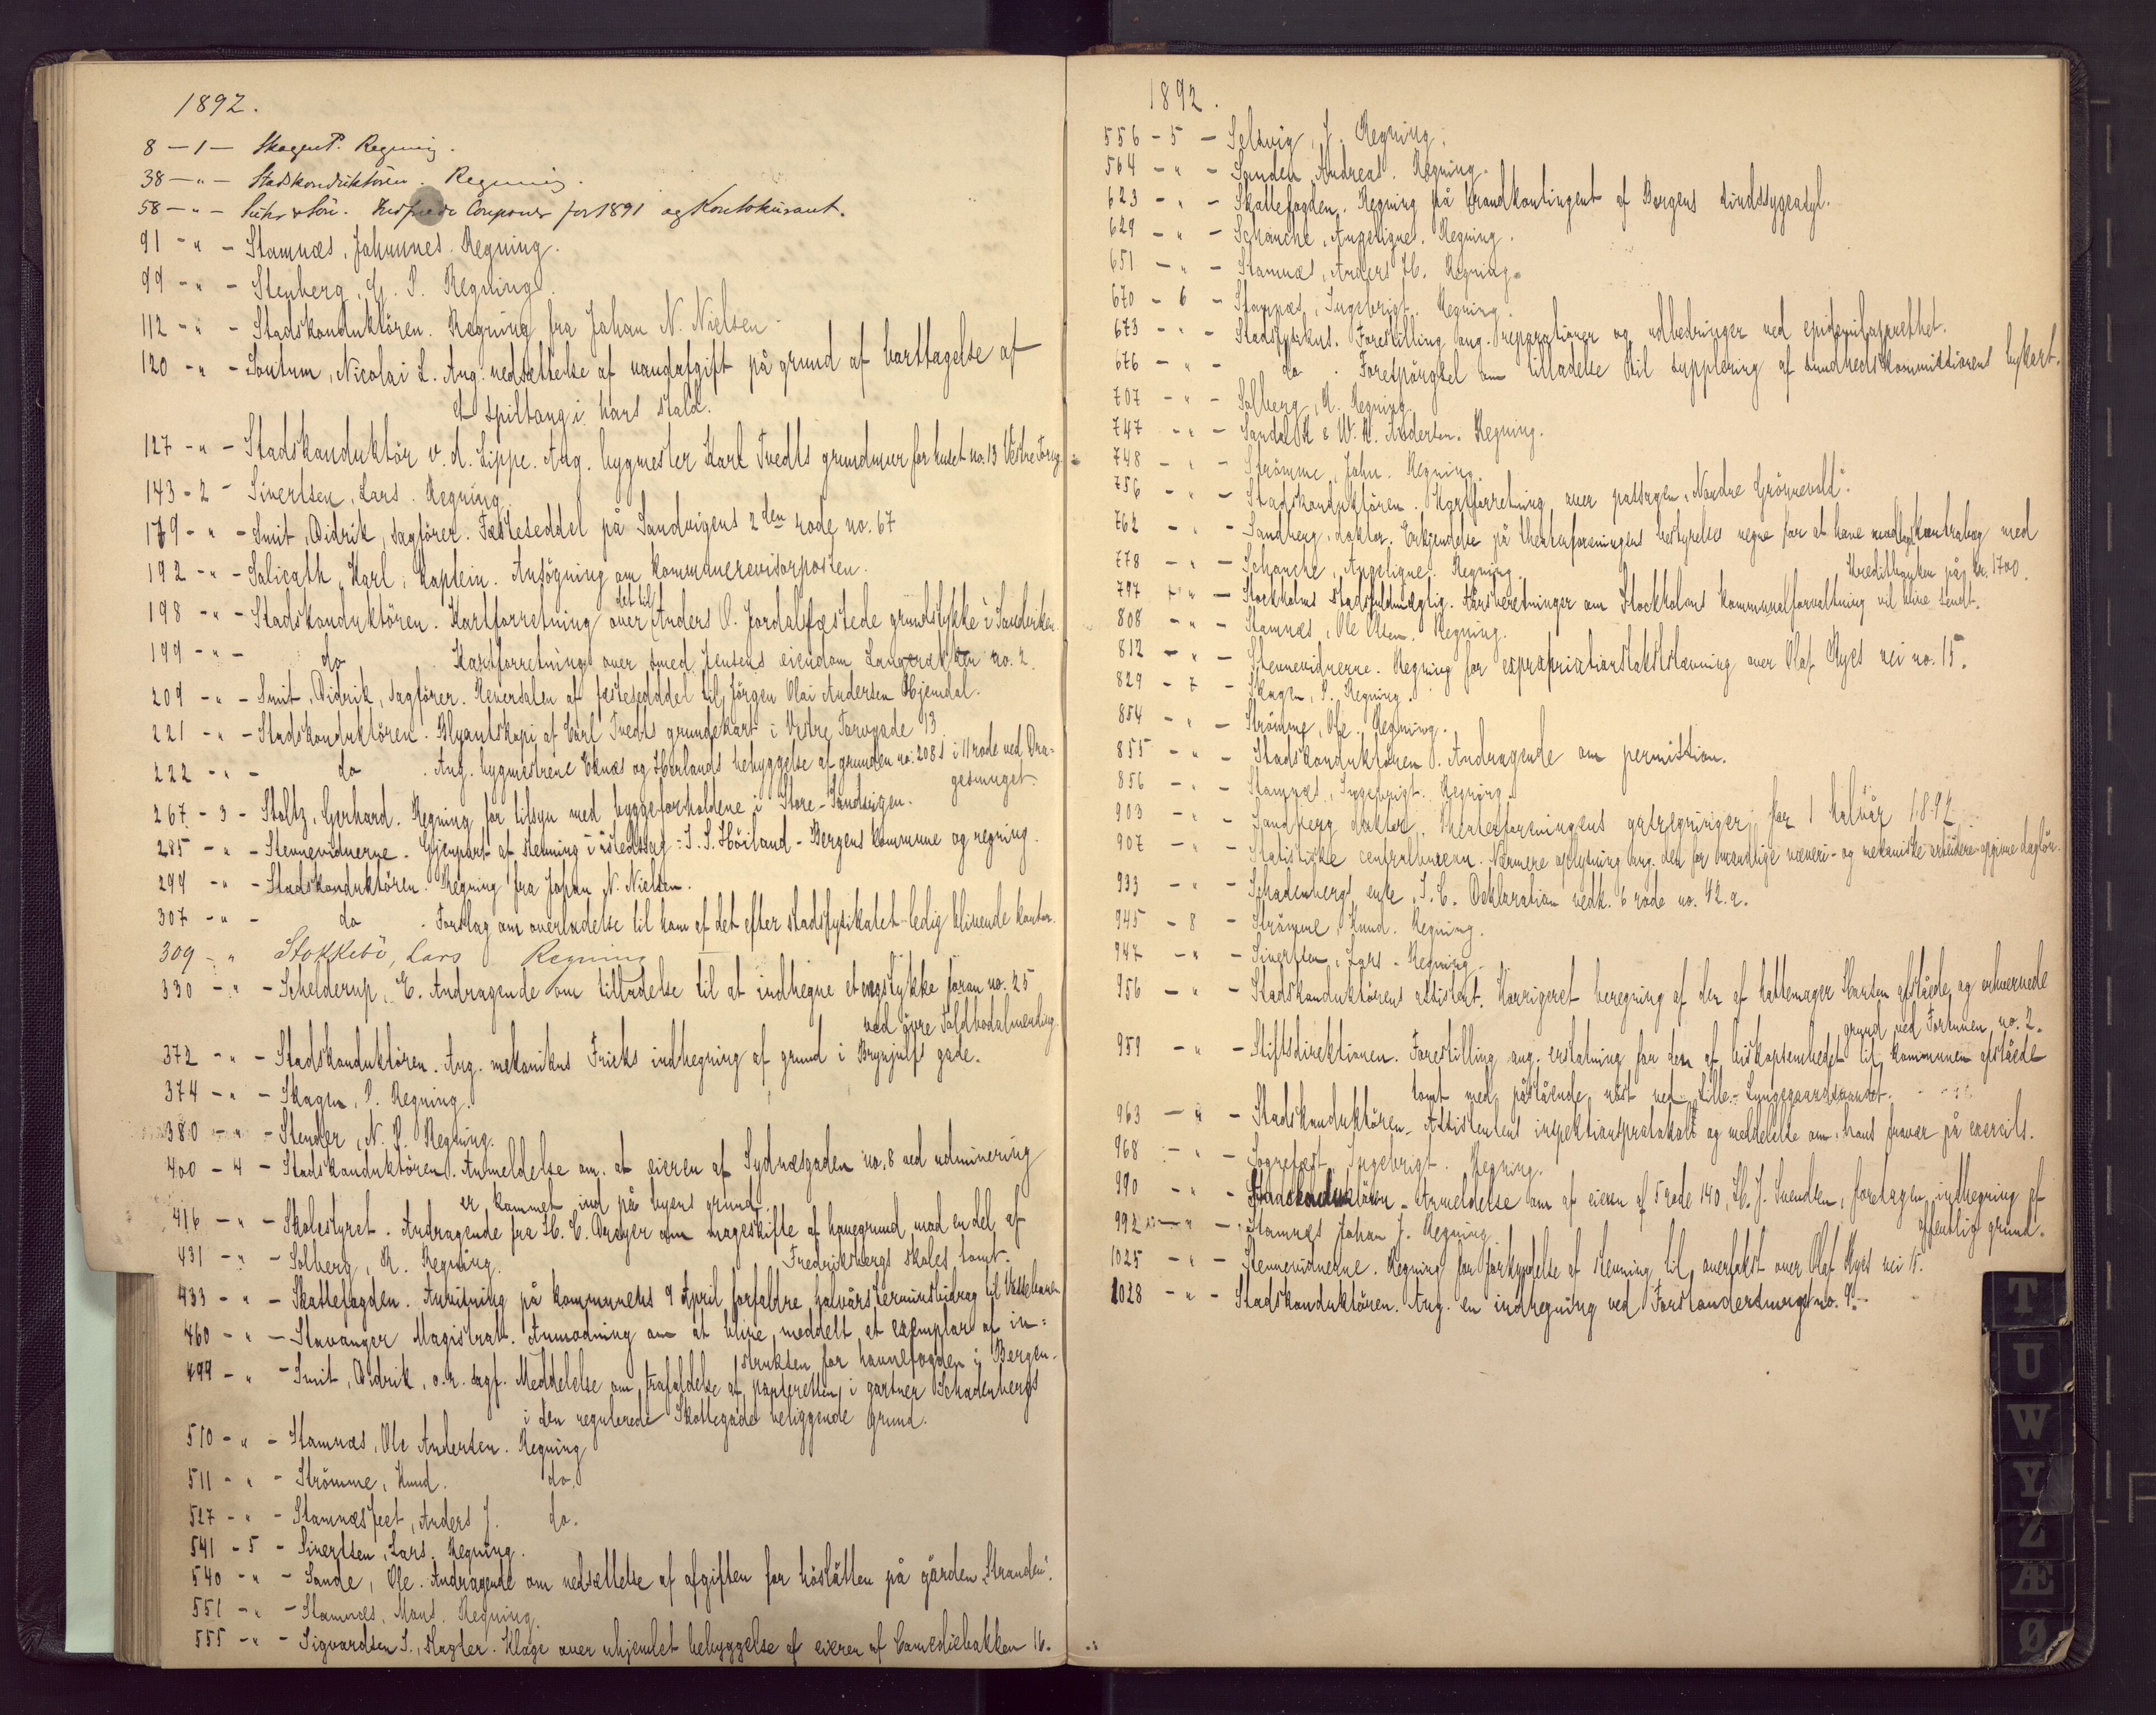 1892.
8 - 1 - Skagen P. Regning.
38 - " - Stadskonduktören. Regning.
58 - " - Suhr & Sön. Coupons for 1891 og Kontokurant.
91 - " - Stamnæs, Johannes. Regning.
99 - " - Stenberg, G. P. Regning.
112 - " - Stadskonduktören. Regning fra Johan N. Nielsen.
120 - " - Sontum, Nicolai L. Ang. nedsættelse af vandafgift på grund af borttagelse af
et spiltong i hans stald.
127 - " - Stadskonduktör v. d. Lippe. Ang. bygmester Karl Tvedts grundmur for huset no. 13 Vestre Torvg.
143 - 2 - Sivertsen, Lars. Regning.
179 - " - Smit, Didrik, sagförer. Fæsteseddel på Sandvigens 2den rode no. 67
192 - " - Salicath, Karl, kaptein. Ansögning om kommunerevisorposten.
198 - " - Stadskonduktören. Kartforretning over det til Anders O. Jordal fæstede grundstykke i Sandviken.
199 - " - do. Kartforretning over smed Jensens eiendom Langerækken no. 2.
209 - " - Smit, Didrik, sagförer. Reversalen af fæsteseddel til Jörgen Olai Andersen Hjemdal.
221 - " - Stadskonduktören. Blyantskopi af Carl Tvedts grundekart i Vestre Torvgade 13
222 - " - do. Ang. bygmestrene Eknæs og Herlands bebyggelse af grunden no. 208 s i 11 rode ved Dra-
gesmuget.
267 - 3 - Stoltz, Gerhard. Regning for tilsyn med byggeforholdene i Store-Sandvigen.
285 - " - Stevnevidnerne. Gjenpart af stevning i åstedssag: I. S. Höiland - Bergens kommune og regning.
299 - " - Stadskonduktören. Regning fra Johan N. Nielsen.
307 - " - do. Forslag om overladelse til ham af det efter stadsfysikatet ledig blivende kontor.
309 - " Stokkebö, Lars Regning
330 - " - Schelderup, E. Andragende om tilladelse til at indhegne et engstykke foran no. 25
ved övre Toldbodalmending.
372 - " - Stadskonduktören. Ang. mekanikus Trieks indhegning af grund i Brynjulfs gade.
374 - " - Skagen, P. Regning.
380 - " - Stender, N. P. Regning.
400 - 4 - Stadskonduktören. Anmeldelse om, at eieren af Sydnæsgaden no. 8 ved udminering
er kommet ind på byens grund.
416 - " - Skolestyret. Andragende fra H. C. Dreyer om mageskifte af havegrund mod en del af
Fredriksbergs skoles tomt.
431 - " - Solberg, R. Regning.
433 - " - Skattefogden. Anvisning på kommunens 9 April forfaldne halvårsterminsbidrag til Vossebanen
460 - " - Stavanger Magistrat. Anmodning om at blive meddelt et exemplar af in-
struksen for havnefogden i Bergen.
499 - " - Smit, Didrik, o.r. sagf. Meddelelse om frafaldelse af panteretten i gartner Schadenbergs
i den regulerede Skottegade beliggende grund.
510 - " - Stamnæs, Ole Andersen. Regning
511 - " - Strömme, Knud. do.
527 - " - Stamnæsfeet, Anders J. do.
541 - 5 - Sivertsen, Lars. Regning.
540 - " - Sande, Ole. Andragende om nedsættelse af afgiften for höslåtten på gården "Stranden".
551 - " - Stamnæs, Mons. Regning.
555 - " - Sigvardsen S., slagter. Klage over uhjemlet bebyggelse af eieren af Comediebakken 16.
1892.
556 - 5 - Selsvig, J. Regning.
564 - " - Sunden, Andreas. Regning.
623 - " - Skattefogden. Regning på brandkontingent af Bergens sindssygeasyl.
629 - " - Schanche, Angelique. Regning.
651 - " - Stamnæs, Anders H. Regning.
670 - 6 - Stamnæs, Ingebrigt. Regning.
673 - " - Stadsfysikus. Forestilling ang. reparationer og udbedringer ved epidemilazarethet.
676 - " - do. Forespörgsel om tilladelse til supplering af sundhedskommissionens bykart.
707 - " - Solberg, R. Regning
747 - " - Sandal R & W. K. Andersen. Regning.
748 - " - Strömme, John. Regning.
756 - " - Stadskonduktören. Kartforretning over passagen "Nordre Grönnevold".
762 - " - Sandberg, doktor. Erkjendelse på theaterforeningens bestyrelses vegne for at have modtaget kontrabog med
Kreditbanken på kr. 1700.
778 - " - Schanche, Angelique. Regning.
797 - " - Stockholms stadsfuldmægtig. Aarsberetninger om Stockholms kommunalforvaltning vil blive sendt.
808 - " - Stamnæs, Ole Olsen. Regning.
812 - " - Stevnevidnerne. Regning for expropriationstakststevning over Olaf Ryes vei no. 15.
829 - 7 - Skagen, P. Regning.
854 - " - Strömme, Ole. Regning.
855 - " - Stadskonduktören. Andragende om permission.
856 - " - Stamnæs, Ingebrigt. Regning.
903 - " - Sandberg doktor. Theaterforeningens gasregninger for 1 halvår 1892
907 - " - Statistiske centralbureau. Nærmere oplysning ang. den for mandlige væveri- og mekaniske arbeidere opgivne daglön.
933 - " - Schadenbergs enke, J. C. Deklaration vedk. 6 rode no. 42.a.
945 - 8 - Strömme, Knud. Regning.
947 - " - Sivertsen, Lars. Regning.
956 - " - Stadskonduktörens assistent. Korrigeret beregning af den af hattemager Hansen afståede og erhvervede
grund ved Fortunen, no. 2.
959 - " - Stiftsdirektionen. Forestilling ang. erstatning for den af biskopsembedet til kommunen afståede
tomt med påstående nöst ved Lille-Lungegaardsvandet.
963 - " - Stadskonduktören. Assistentens inspektionsprotokoll og meddelelse om hans fravær på exercits.
968 - " - Sognefæst, Ingebrigt. Regning.
990 - " - Stadskonduktören. Anmeldelse om at eieren af 5 rode 140, H. J. Svendsen, foretagen indhegning af
offentlig grund.
992 - " - Stamnæs Johan J. Regning.
1025 - " - Stevnevidnerne. Regning for forkyndelse af stevning til overtakst over Olaf Ryes vei 15.
1028 - " - Stadskonduktören. Ang. en indregning ved Forstandersmuget no. 9.
T
U
W
Y
Z
Æ
Ø